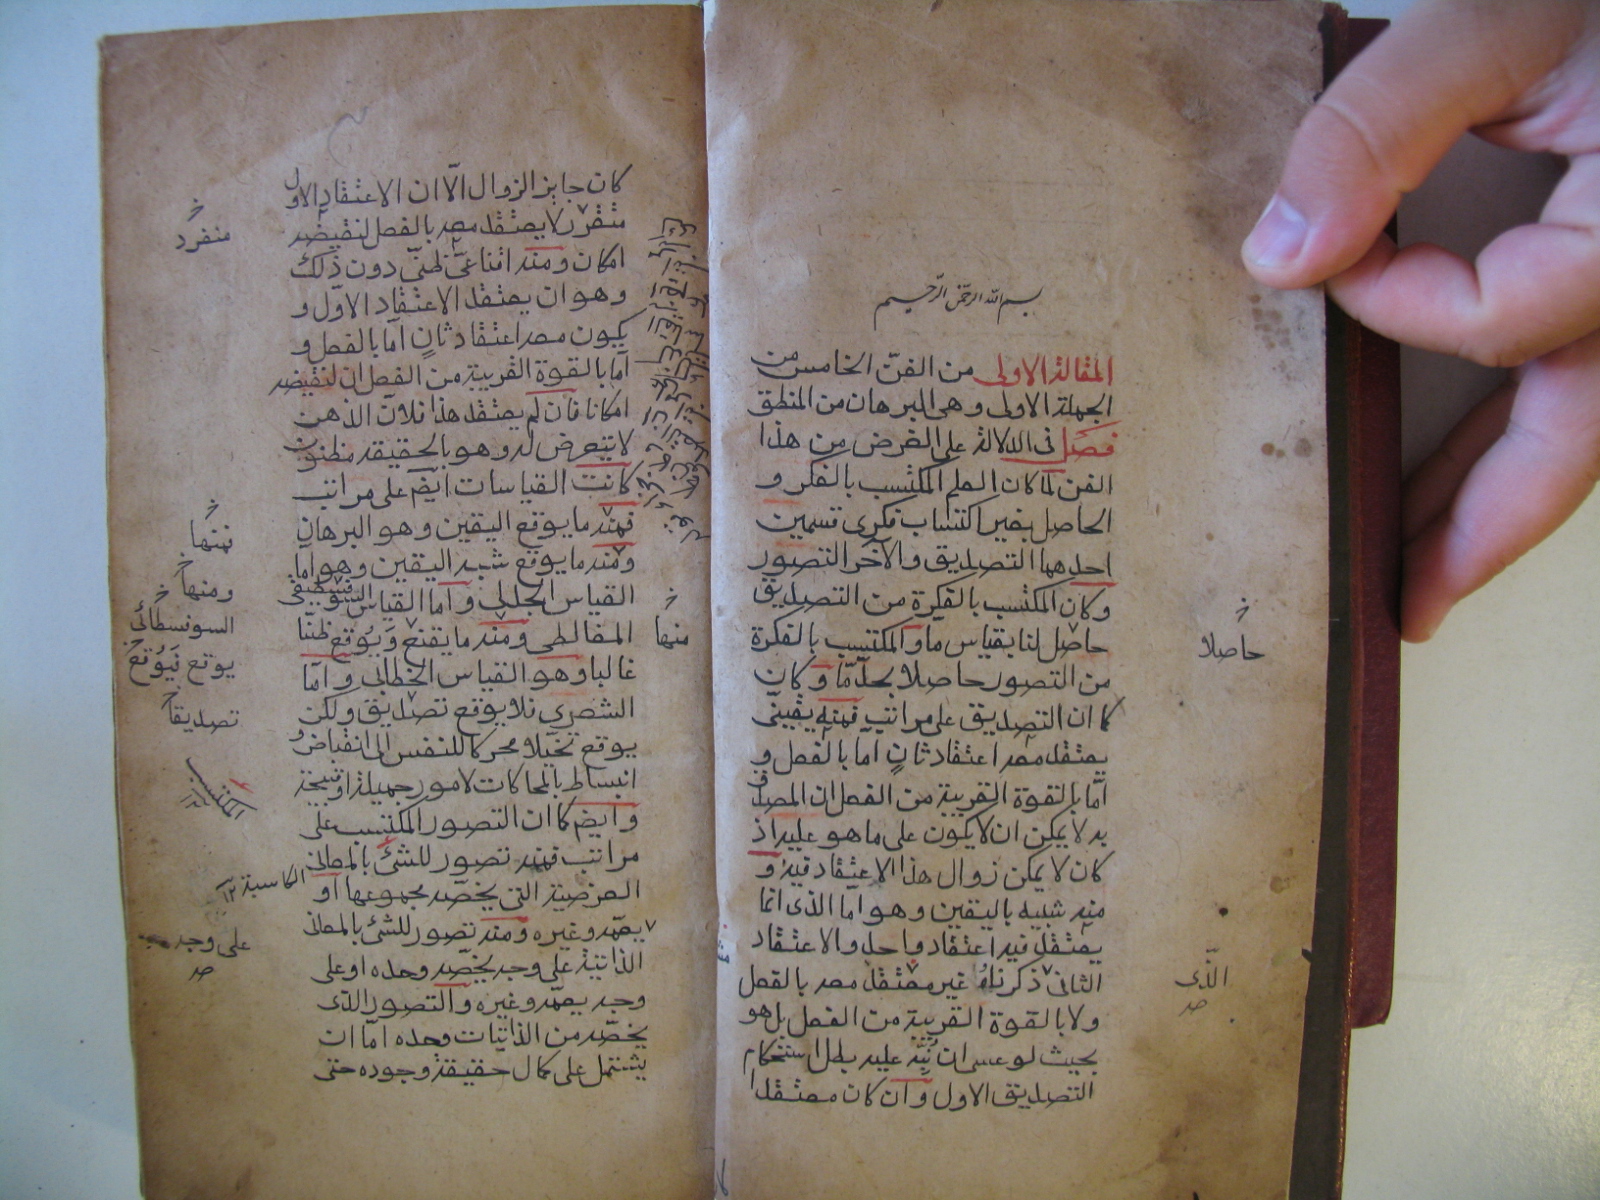 بسم الله الرحمن الرحيم
المقالة الاولى من الفنّ الخامس من
الجملة الاولى وهى البرهان من المنطق
فصل فى الدلالة على الغرض من هذا
الفن لمّا كان العلم المكتسب بالفكر و
الحاصل بغير اكتساب فكرى قسمين
احدهما التصديق والآخر التصور
وكان المكتسب بالفكرة من التصديق
حاصل لنا بقياس ما والمكتسب بالفكرة
من التصور حاصلا بحدّ مّا وكان
كما ان التصديق على مراتب فمنه يقينىّ
يعتقد معه اعتقاد ثانٍ امّا بالفعل و
امّا بالقوة القريبة من الفعل ان المصدق
به لا يمكن ان لا يكون على ما هو عليه اذ
كان لا يمكن زوال هذا الاعتقاد فيه و
منه شبيه باليقين وهو امّا الذى انما
يعتقد فيه اعتقاد واحد والاعتقاد
الثانى ذكرناه غير معتقد معه بالفعل
ولا بالقوة القريبة من الفعل بل هو
بحيث لو عسى ان نُبّه عليه بطل استحكام
التصديق الاول وان كان معتقدا
حاصلا
الّذى
صح
كان جايز الزوال الّا ان الاعتقاد الاول
متقرر لا يعتقد معه بالفعل لنقيضه
امكان ومنه اقناعىّ ظنىّ دون ذلك
وهو ان يعتقد الاعتقاد الاوّل و
يكون معه اعتقاد ثانٍ امّا بالفعل و
امّا بالقوة القريبة من الفعل ان لنقيضه
امكانا فان لم يعتقد هذا فلانّ الذهن
لا يتعرض له وهو بالحقيقة مظنون
كانت القياسات ايضم على مراتب
فمنه ما يوقع اليقين وهو البرهان
ومنه ما يوقع شبه اليقين وهو امّا
القياس الجدلى وامّا القياس السوفسطيقى
المغالطى ومنه ما يقنع وَيُوقع ظنّا
غالبا وهو القياس الخطابى وامّا
الشعرى فلا يوقع تصديق ولكن
يوقع تخيّلا محركا للنفس الى انقباض و
انبساط بالمحاكات لامور جميلة او قبيحة
وايضم كما ان التصور المكتسب على
مراتب فمنه تصور للشئ بالمعانى
العرضية التى يخصّه مجموعها او
يعمّه وغيره ومنه تصور للشئ بالمعانى
الذاتية على وجه يخصّه وحده او على
وجه يعمّه وغيره والتصور الذى
يخصّه من الذاتيات وحده امّا ان
يشتمل على كمال حقيقة وجوده حتى
منفرد
فمنها
ومنها
السوفسطائى
يوقع فَيُوقع
تصديقا
المكتسب ١٢
الكاسبة ١٢
على وجه
صح
منها